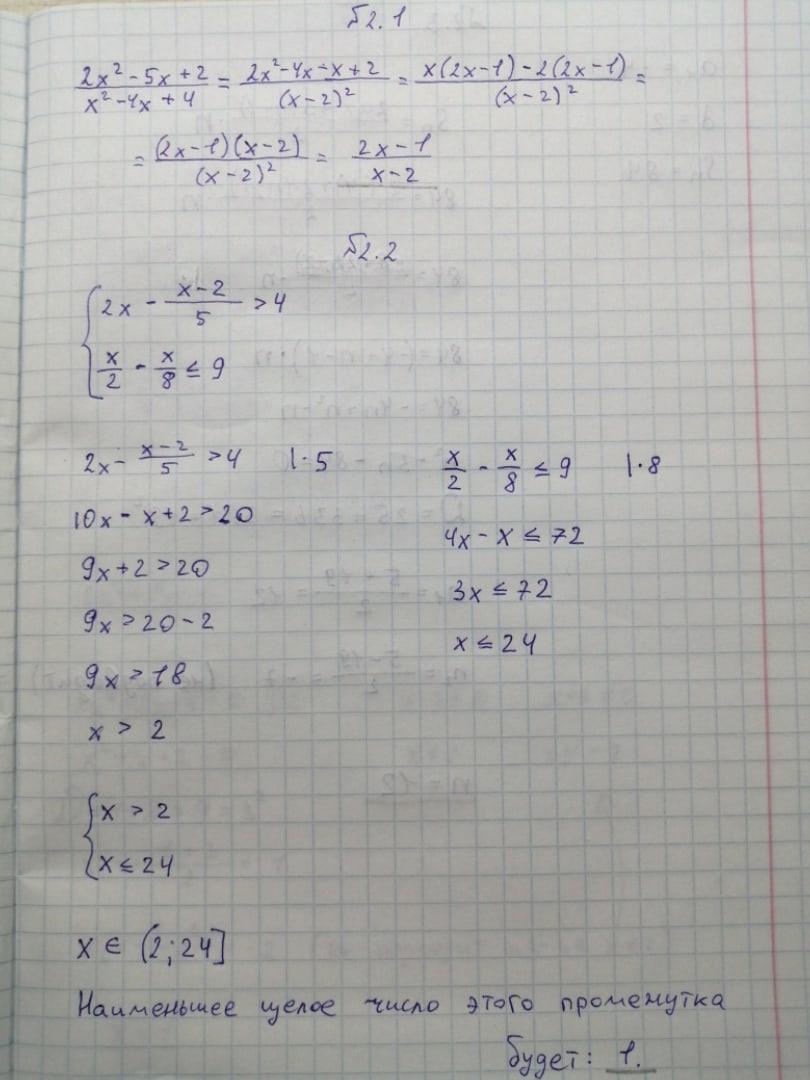 Б2.1
2x² - 5x + 2 / x² - 4x + 4 = 2x² - 4x - x + 2 / (x-2)² = x(2x-1) - 2(2x-1) / (x-2)² =
= (2x-1)(x-2) / (x-2)² = 2x-1 / x-2
Б2.2
{ 2x - x-2 / 5 > 4
x/2 - x/8 ≤ 9
2x - x-2 / 5 > 4 | · 5
x/2 - x/8 ≤ 9 | · 8
10x - x + 2 > 20
4x - x ≤ 72
9x + 2 > 20
3x ≤ 72
9x > 20 - 2
x ≤ 24
9x > 18
x > 2
{ x > 2
x ≤ 24
x ∈ (2; 24]
Наименьшее целое число этого промежутка
будет: 1.